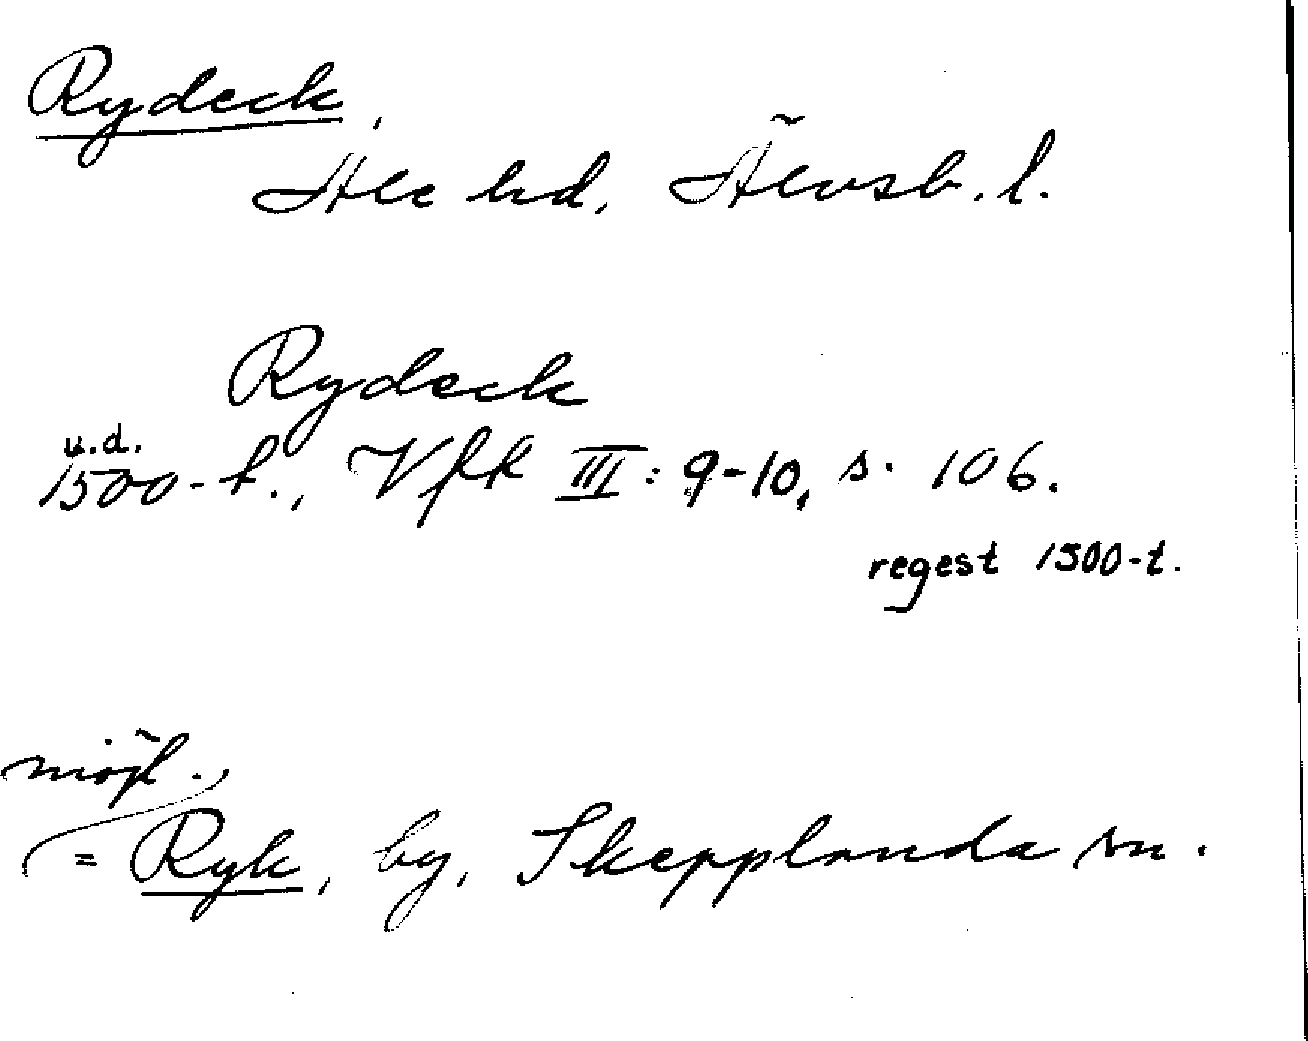 Rydeck,
Ale hd, Älvsb. l.
Rydeck
u.d.
1500-t., Vfk III: 9-10, s. 106.
regest 1500-t.
möjl.
= Ryk, by, Skepplanda sn.